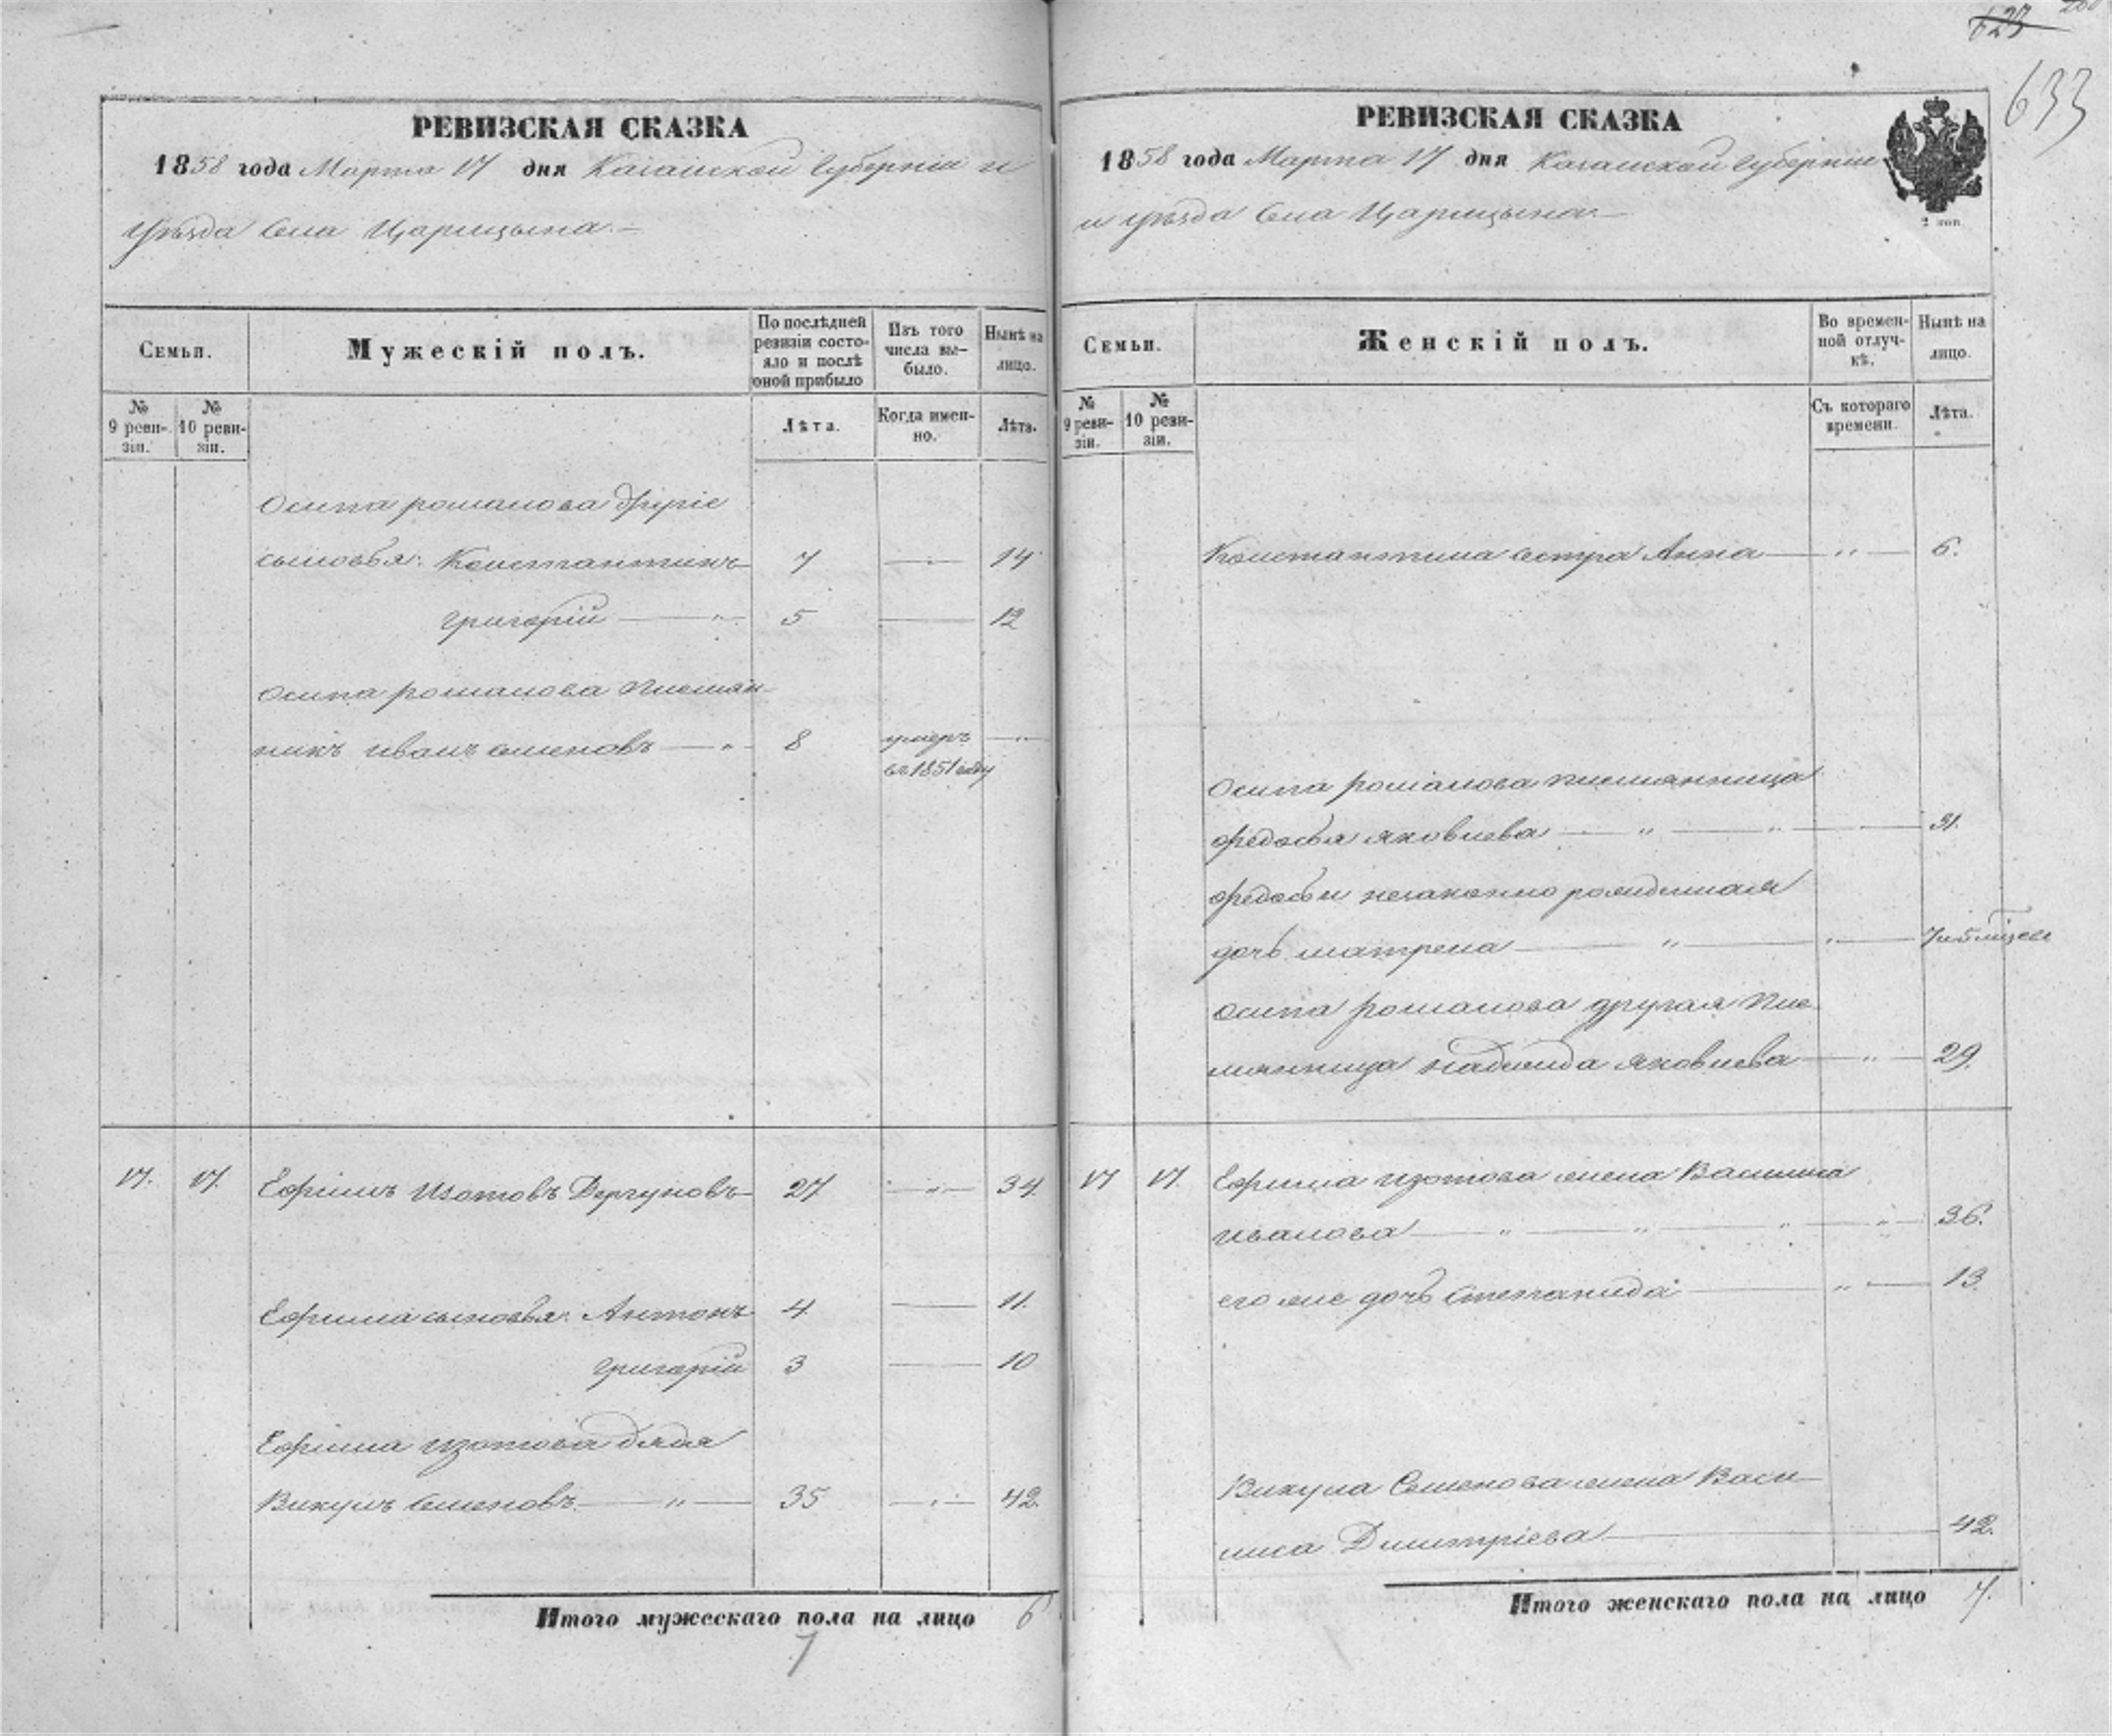 РЕВИЗСКАЯ СКАЗКА
1858 года Марта 17 дня Казанской губерніи и
уѣзда села Царицына.
Семьи.
Мужескій полъ.
По послѣдней ревизіи состояло и послѣ оной прибыло
Изъ того числа выбыло.
Нынѣ на лицо.
№ 9 ревизіи.
№ 10 ревизіи.
Лѣта.
Когда именно.
Лѣта.
Осипа романова другіе
сыновья: Константинъ 7 14
григорій 5 12
Осипа романова племян-
никъ иванъ семеновъ 8 умеръ
въ 1851 году
17. 17. Ефимъ Изотовъ Дергуновъ 27 34
Ефима сыновья: Антонъ 4 11.
григорій 3 10
Ефима изотова дядя
Викулъ Семеновъ 35 42.
Итого мужескаго пола на лицо 6
7
623
633
РЕВИЗСКАЯ СКАЗКА
1858 года Марта 17 дня Казанской губерніи
и уѣзда села Царицына
2 коп.
Семьи.
Женскій полъ.
Во временной отлучкѣ.
Нынѣ на лицо.
№ 9 ревизіи.
№ 10 ревизіи.
Съ котораго времени.
Лѣта.
Константина сестра Анна 6.
Осипа романова племянница
федосья яковлева 31.
федосьи незаконно рожденная
дочь матрена 7 и 5 мѣсеце
осипа романова другая пле-
мянница надежда яковлева 29.
17 17. Ефима изотова жена Василиса
иванова 36.
его же дочь Степанида 13
Викула Семенова жена Васи-
лиса Дмитріева 42.
Итого женскаго пола на лицо 7.